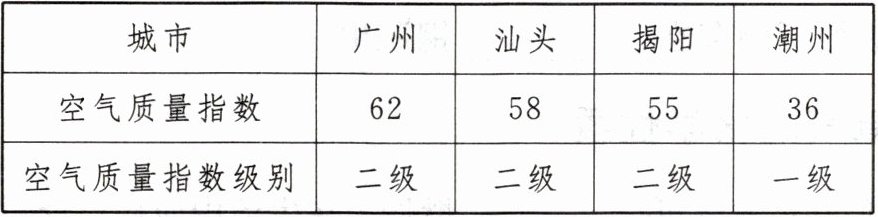 城市 广州 汕头 揭阳 潮州
空气质量指数 62 58 55 36
空气质量指数级别 二级 二级 二级 一级